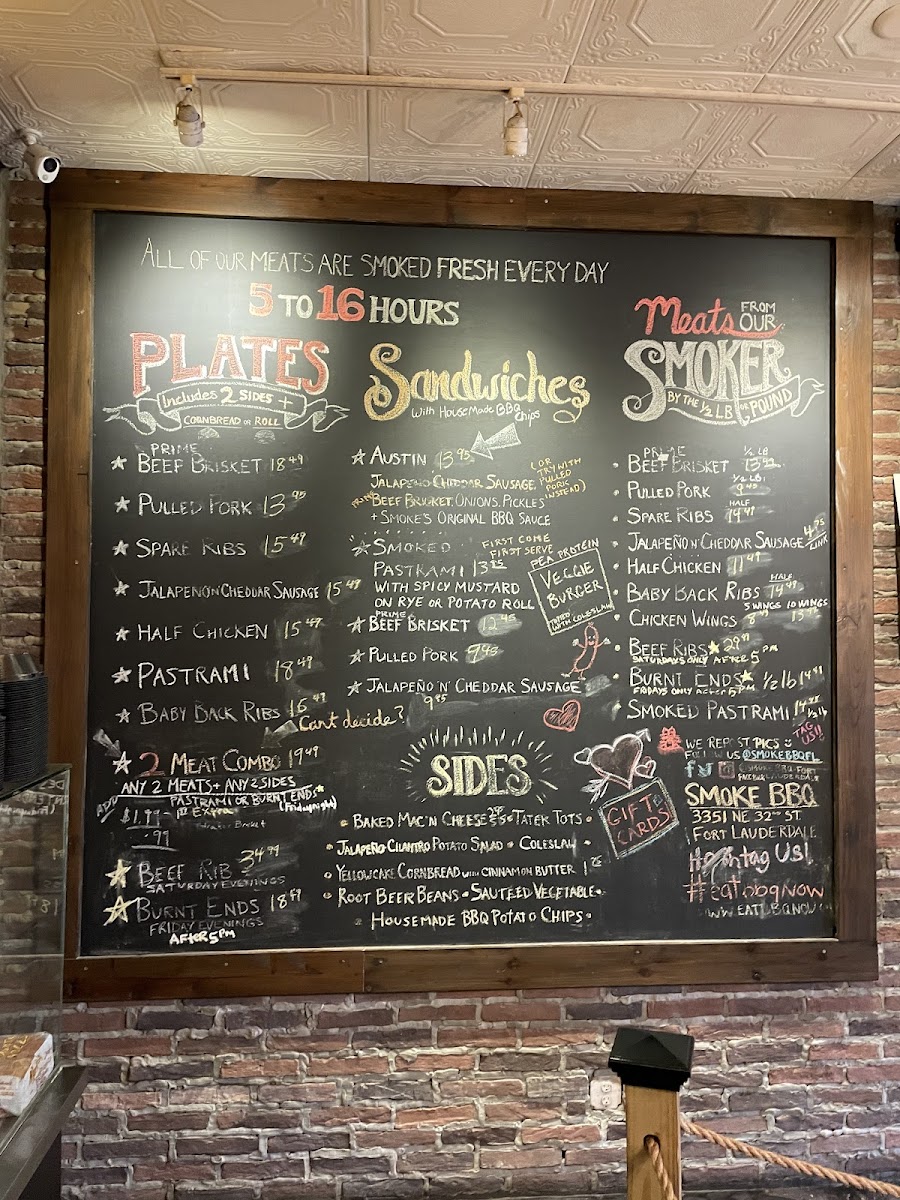 ALL OF OUR MEATS ARE SMOKED FRESH EVERY DAY
5 TO 16 HOURS
PLATES
Includes 2 SIDES +
CORNBREAD OR ROLL
PRIME
BEEF BRISKET 18 49
PULLED PORK 13 95
SPARE RIBS 15 49
JALAPENO N CHEDDAR SAUSAGE 15 49
HALF CHICKEN 15 49
PASTRAMI 18 49
BABY BACK RIBS 16 49
Can't decide?
2 MEAT COMBO 19 49
ANY 2 MEATS + ANY 2 SIDES
PASTRAMI OR BURNT ENDS
ADD
Extra
(Friday night)
$1.99
.99
BEEF RIB 34 99
SATURDAY EVENINGS
BURNT ENDS 18 49
FRIDAY EVENINGS
AFTER 5PM
Sandwiches
With HouseMade BBQ
Chips
AUSTIN 13 95
JALAPENO CHEDDAR SAUSAGE,
PRIME BEEF BRISKET, ONIONS, PICKLES
+ SMOKE'S ORIGINAL BBQ SAUCE
( OR
TRY WITH
PULLED
PORK
INSTEAD)
SMOKED
PASTRAMI 13
FIRST COME
FIRST SERVE
WITH SPICY MUSTARD
ON RYE OR POTATO ROLL
PEA PROTEIN
VEGGIE
BURGER
TOPPED
WITH COLESLAW
PRIME
BEEF BRISKET 12 45
PULLED PORK 9 45
JALAPEÑO 'N' CHEDDAR SAUSAGE
9 85
SIDES
BAKED MAC'N CHEESE • TATER TOTS
JALAPEÑO CILANTRO POTATO SALAD • COLESLAW
YELLOWCAKE CORNBREAD WITH CINNAMON BUTTER 1
ROOT BEER BEANS • SAUTEED VEGETABLE
HOUSEMADE BBQ POTATO CHIPS
GIFT
CARDS
Meats FROM
OUR
SMOKER
BY THE 1/2 LB OR POUND
PRIME
1/2 LB
BEEF BRISKET 13
1/2 LB
PULLED PORK 9 45
HALF
SPARE RIBS 14 41
JALAPEÑO N' CHEDDAR SAUSAGE 4 75
LINK
HALF CHICKEN 11 49
HALF
BABY BACK RIBS 14 49
5 WINGS 10 WINGS
CHICKEN WINGS 8 13
BEEF RIBS 29 99
SATURDAYS ONLY AFTER 5 PM
BURNT ENDS 1/2 lb 14 41
FRIDAYS ONLY AFTER 5PM
SMOKED PASTRAMI 14
1/2 lb
TAG
US!!
WE REPOST PICS
FOLLOW US @SMOKEBBQFL
SMOKE BBQ
3351 NE 32ND ST.
FORT LAUDERDALE
Hashtag Us!
#eatbbqnow
WWW.EATBBQNOW